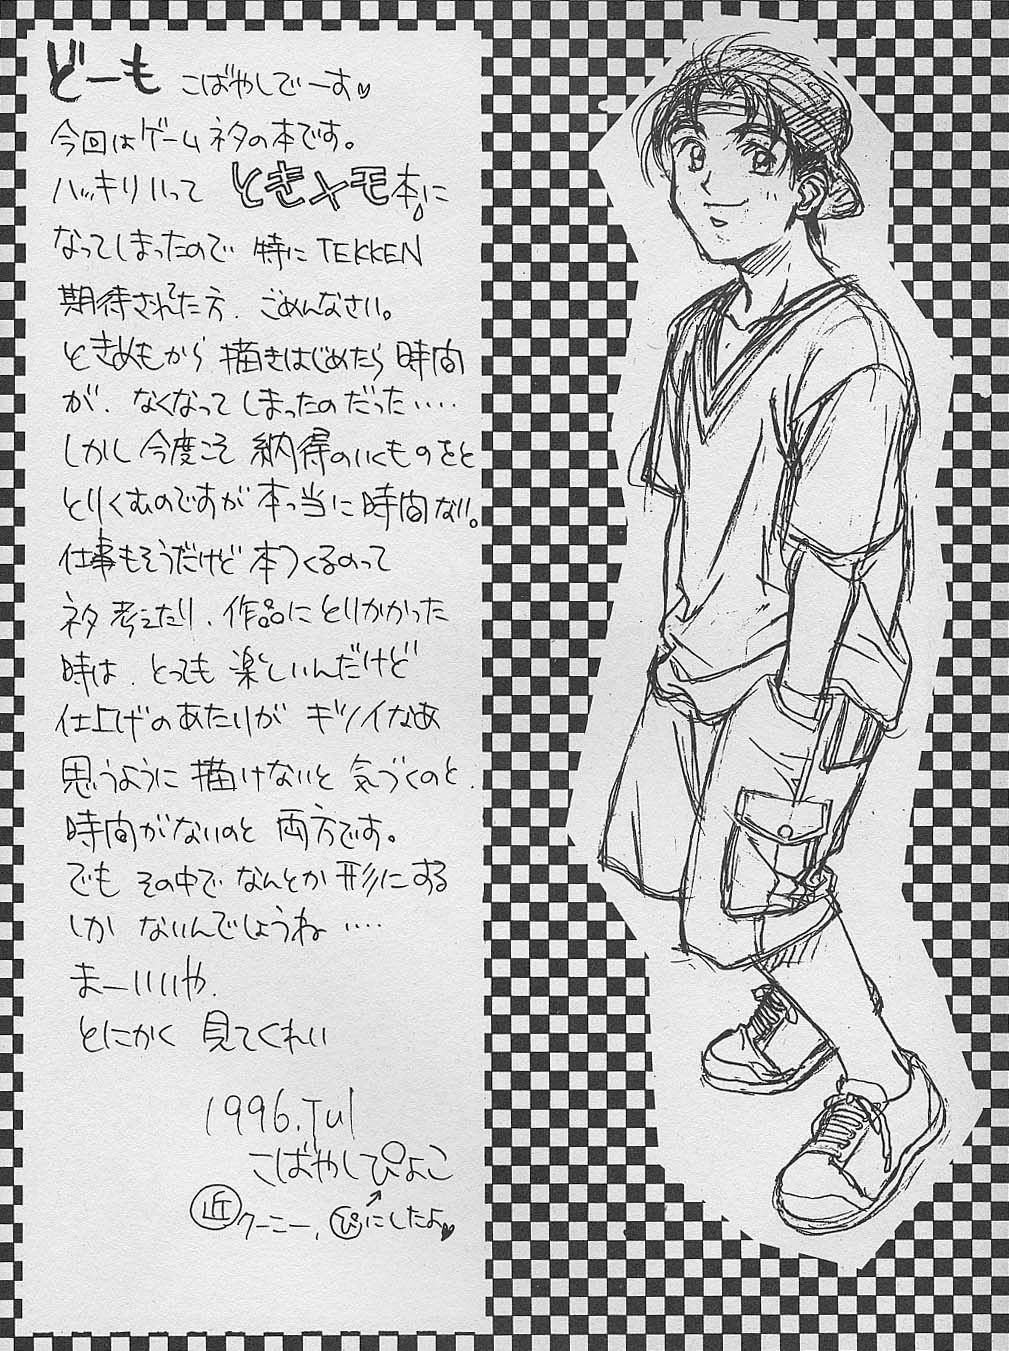 どーも こばやしでーす♡
今回はゲームネタの本です。
ハッキリいって ときメモ本に
なってしまったので 特にTEKKEN
期待されてた方、ごめんなさい。
ときめもから 描きはじめたら 時間
が、なくなってしまったのだった‥‥
しかし 今度こそ 納得のいくものをと
とりくむのですが 本っ当に 時間ない。
仕事もそうだけど 本つくるのって
ネタ考えたり、作品にとりかかった
時は、とっても 楽しいんだけど
仕上げのあたりが キツイなあ
思うように 描けないと 気づくのと、
時間がないのと 両方です。
でも その中で なんとか 形にする
しか ないんでしょうね‥‥
まーいいや、
とにかく 見てくれい
1996.Jul
こばやしぴよこ
近クーニー、ぴにしたよ♥